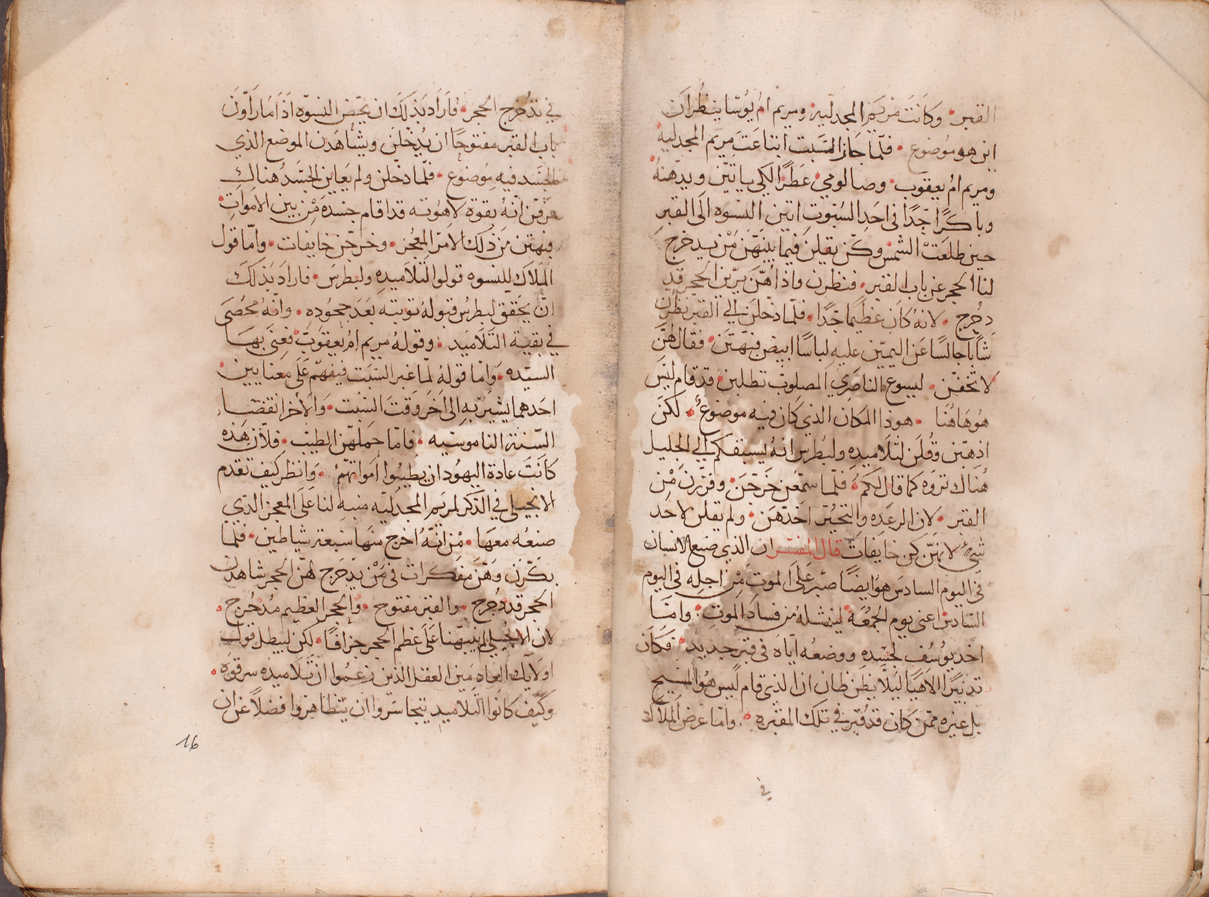 القبر • وكانت مريم المجدليه ومريم ام يوسا ينظران
اين هو موضوع • فلما جاز السبت ابتاعت مريم المجدليه
ومريم ام يعقوب • وصالومي • عطرًا لكي ياتين ويدهنه
وباكرًا جدًا في احد السبوت اتين النسوه الى القبر
حين طلعت الشمس وكن يقلن فيما بينهن من يدحرج
لنا الحجر عن باب القبر • فنظرن واذا هن يرين الحجر قد
دحرج • لانه كان عظيما جدًا • فلما دخلن الى القبر نظرن
شابا جالسا عن اليمين عليه لباسًا ابيض فبهتن • فقال لهن
لا تخفن • ليسوع الناصري المصلوب تطلبن • قد قام ليس
هو هاهنا • هوذا المكان الذي كان فيه موضوع • لكن
اذهبن وقلن لتلاميذه ولبطرس انه يسبقكم الى الجليل
هناك تروه كما قال لكم • فلما سمعن خرجن وفررن من
القبر • لان الرعده والتحير اخذهن • ولم يقلن لاحد
شيء لانهن كن خايفات قال المفسر ان الذي صنع الانسان
في اليوم السادس هو ايضًا صبر على الموت من اجله في اليوم
السادس اعني يوم الجمعة لينشله من فساد الموت • واما
اخذ يوسف لجسده ووضعه اياه في قبر جديد • فكان
تدبيرًا الاهيا ليلا يظن ظان ان الذي قام ليس هو المسيح
بل غيره ممن كان قد قبر في تلك المقبره • واما عرض الملاك
في
في تدحرج الحجر • فاراد بذلك ان تحضر النسوه اذا ما راون
باب القبر مفتوحًا ان يدخلن ويشاهدن الموضع الذي
الجسد فيه موضوع • فلما دخلن ولم يعاين الجسد هناك
عرفن انه بقوة لاهوته قد اقام جسده من بين الاموات
فبهتن من ذلك الامر المعجز • وخرجن خايفات • واما قول
الملاك للنسوه قولوا لتلاميذه ولبطرس • فاراد بذلك
ان يحقق لبطرس قبوله توبته بعد جحوده • وانه محصى
في بقية التلاميذ • وقوله مريم ام يعقوب فعنى بها
السيده • واما قوله لما عبر السبت فيفهم على معنايين
احدهما يشير به الى اخر وقت السبت • والاخر انقضاء
السنة الناموسيه • فاما حملهن الطيب • فلان هذه
كانت عادة اليهود ان يطيبوا امواتهم • وانظر كيف تقدم
الانجيل في الذكر لمريم المجدليه منبه لنا على المعجز الذي
صنعه معها • من انه اخرج منها سبعة شياطين • فلما
بكرن وهن مفكرات في من يدحرج لهن الحجر شاهدن
الحجر قد دحرج • والقبر مفتوح • والحجر العظيم مدحرج •
لان الانجيل لم ينبهنا على عظم الحجر جزافًا • لكن ليبطل قول
اولايك العادمين العقل الذين زعموا ان تلاميذه سرقوه •
وكيف كانوا التلاميذ يتجاسروا ان يتظاهروا فضلاً عن ان
16